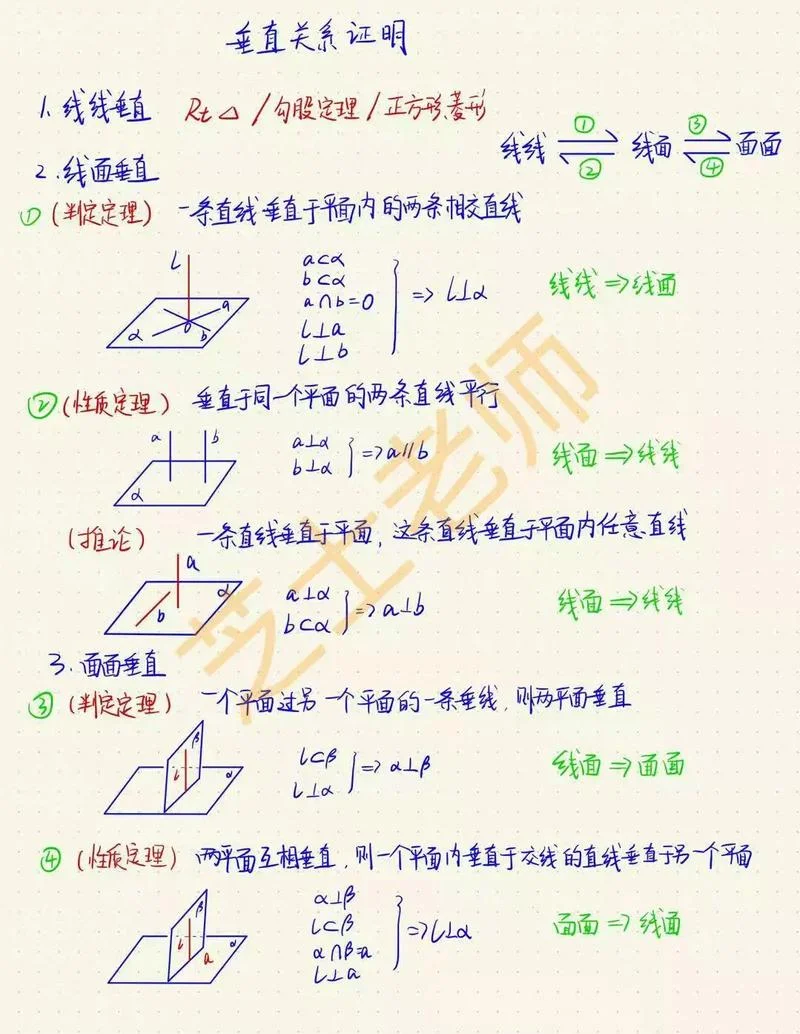 垂直关系证明
1. 线线垂直 Rt△/勾股定理/正方形菱形
线线 ① ② 线面 ③ ④ 面面
2. 线面垂直
① (判定定理) 一条直线垂直于平面内的两条相交直线
l a α o b
a⊂α
b⊂α
a∩b=O
l⊥a
l⊥b
=> l⊥α
线线=>线面
② (性质定理) 垂直于同一个平面的两条直线平行
a b α
a⊥α
b⊥α
=> a∥b
线面=>线线
(推论) 一条直线垂直于平面,这条直线垂直于平面内任意直线
a b α
a⊥α
b⊂α
=> a⊥b
线面=>线线
3. 面面垂直
③ (判定定理) 一个平面过另一个平面的一条垂线,则两平面垂直
β l α
l⊂β
l⊥α
=> α⊥β
线面=>面面
④ (性质定理) 两平面互相垂直,则一个平面内垂直于交线的直线垂直于另一个平面
β l a α
α⊥β
l⊂β
α∩β=a
l⊥a
=> l⊥α
面面=>线面
芝士老师